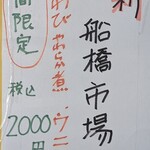 船橋市場
わび やわらか煮 ウニ
間限定
税込
2000円